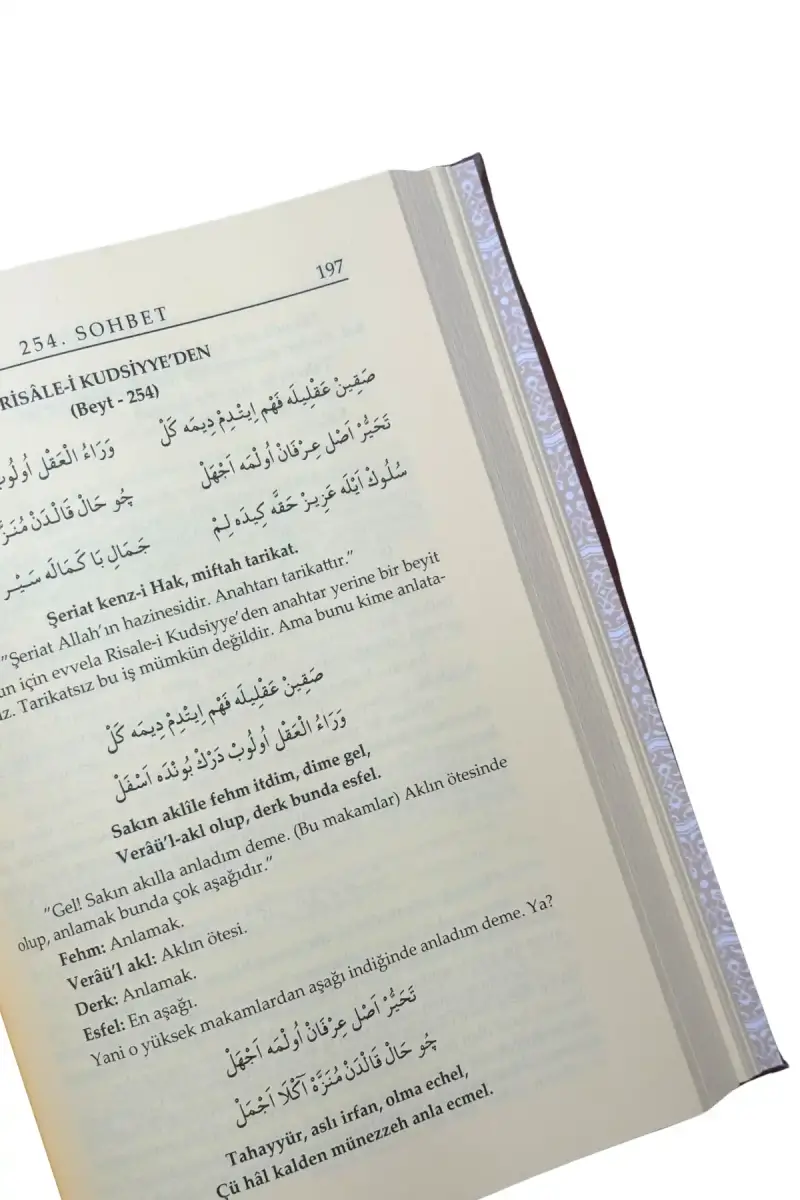 197
254. SOHBET
RİSÂLE-İ KUDSİYYE'DEN
(Beyt - 254)
صَقِينْ عَقْلِيلَه فَهْم اِيتْدِمْ دِيمَه كَلْ وَرَاءُ الْعَقْل
تَحَيُّرْ اَصْل عِرْفَانْ اُولْمَه اَجْهَلْ چُو حَال قَالْدَنْ
سُلُوكْ اَيْلَه عَزِيزْ حَقَّه كِيدَه لِمْ جَمَالِ بَا كَمَالَه سَيْر
Şeriat kenz-i Hak, miftah tarikat.
"Şeriat Allah'ın hazinesidir. Anahtarı tarikattır."
için evvela Risale-i Kudsiyye'den anahtar yerine bir beyit
Tarikatsız bu iş mümkün değildir. Ama bunu kime anlata-
صَقِينْ عَقْلِيلَه فَهْم اِيتْدِمْ دِيمَه كَلْ
وَرَاءُ الْعَقْل اُولُوبْ دَرْكْ بُونْدَه اَسْفَلْ
Sakın aklîle fehm itdim, dime gel,
Verâü'l-akl olup, derk bunda esfel.
"Gel! Sakın akılla anladım deme. (Bu makamlar) Aklın ötesinde
olup, anlamak bunda çok aşağıdır."
Fehm: Anlamak.
Verâü'l akl: Aklın ötesi.
Derk: Anlamak.
Esfel: En aşağı.
Yani o yüksek makamlardan aşağı indiğinde anladım deme. Ya?
تَحَيُّرْ اَصْل عِرْفَانْ اُولْمَه اَجْهَلْ
چُو حَال قَالْدَنْ مُنَزَّهْ اَكْلَا اَجْمَلْ
Tahayyür, aslı irfan, olma echel,
Çü hâl kalden münezzeh anla ecmel.